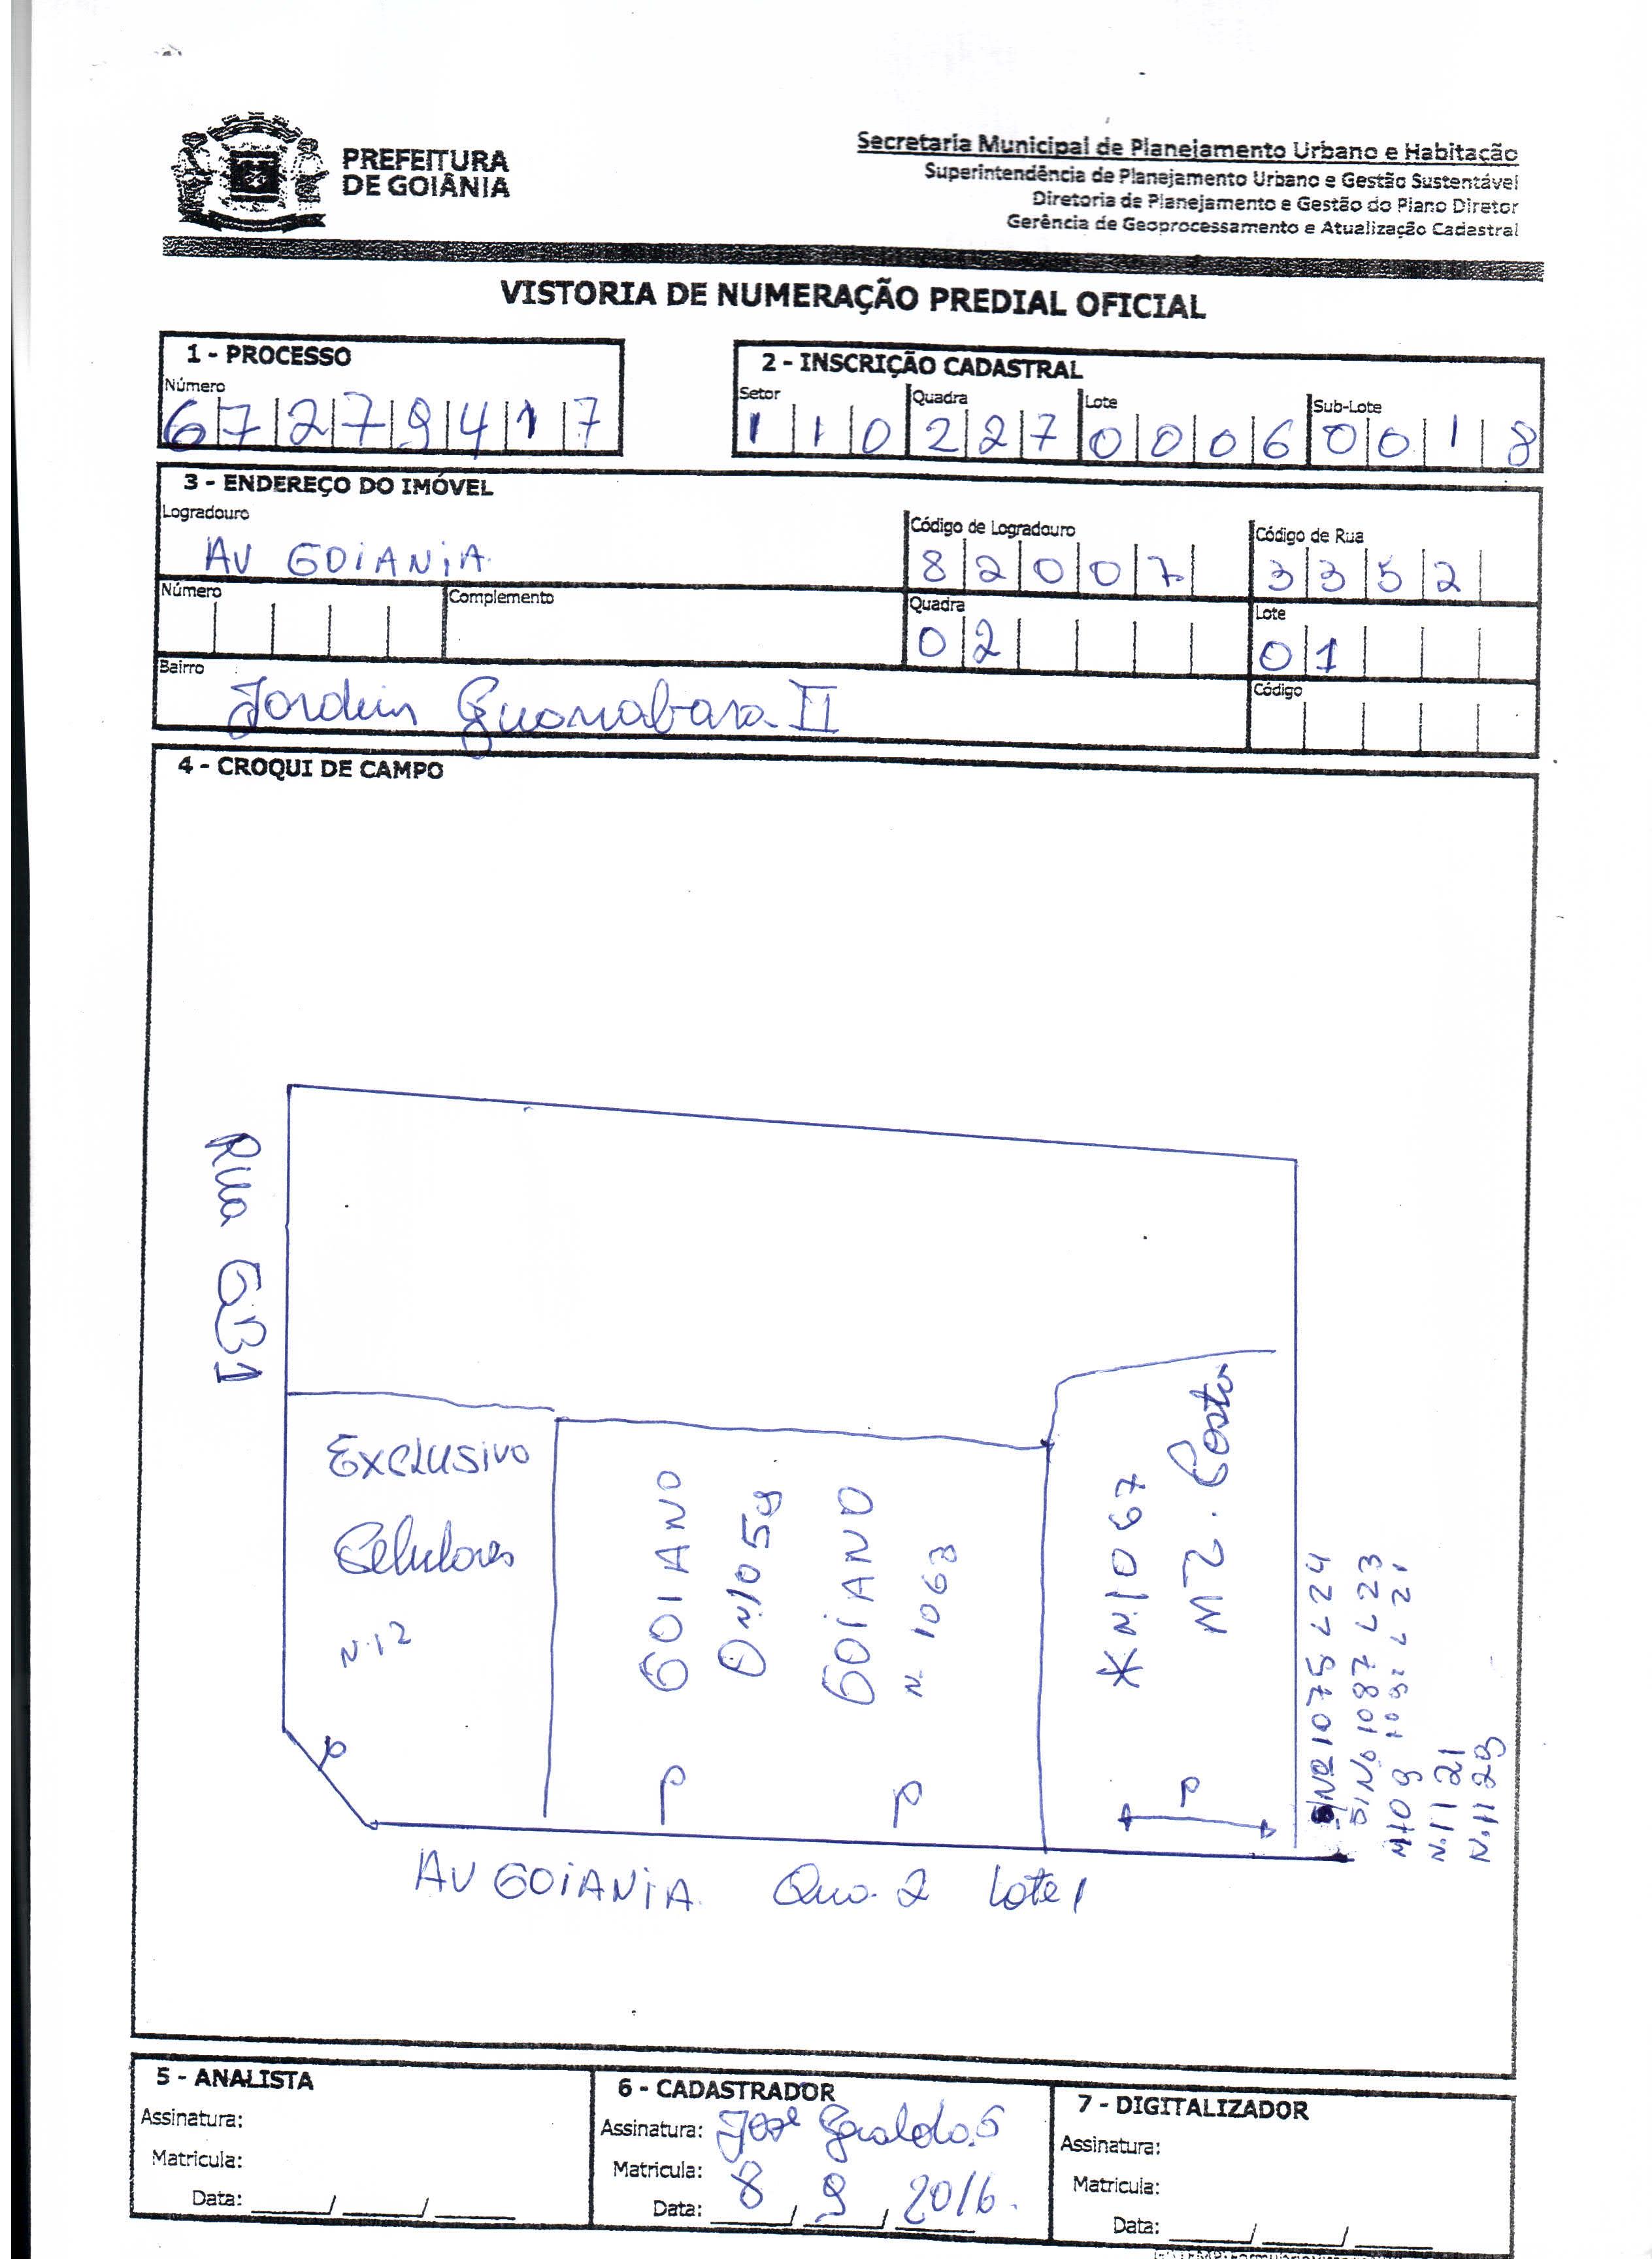 PREFEITURA
DE GOIÂNIA
Secretaria Municipal de Planejamento Urbano e Habitação
Superintendência de Planejamento Urbano e Gestão Sustentável
Diretoria de Planejamento e Gestão do Plano Diretor
Gerência de Geoprocessamento e Atualização Cadastral
VISTORIA DE NUMERAÇÃO PREDIAL OFICIAL
1 - PROCESSO
Número
67279417
2 - INSCRIÇÃO CADASTRAL
Setor Quadra Lote Sub-Lote
110 227 0006 0018
3 - ENDEREÇO DO IMÓVEL
Logradouro Código de Logradouro Código de Rua
AV GOIANIA 82007 3352
Número Complemento Quadra Lote
02 01
Bairro Código
Jardim Guanabara II
4 - CROQUI DE CAMPO
Rua GB1
EXCLUSIVO
Celulares
N.12
GOIANO
N.1059
GOIANO
N. 1063
N.1067
MZ. Costa
1075 L24
1087 L23
N.1121
N.1129
P
P
P
P
AV GOIANIA Qua. 2 Lote 1
5 - ANALISTA
Assinatura:
Matricula:
Data: ____/____/____
6 - CADASTRADOR
Assinatura: José Geraldo.S
Matricula:
Data: 8/9/2016.
7 - DIGITALIZADOR
Assinatura:
Matricula:
Data: ____/____/____